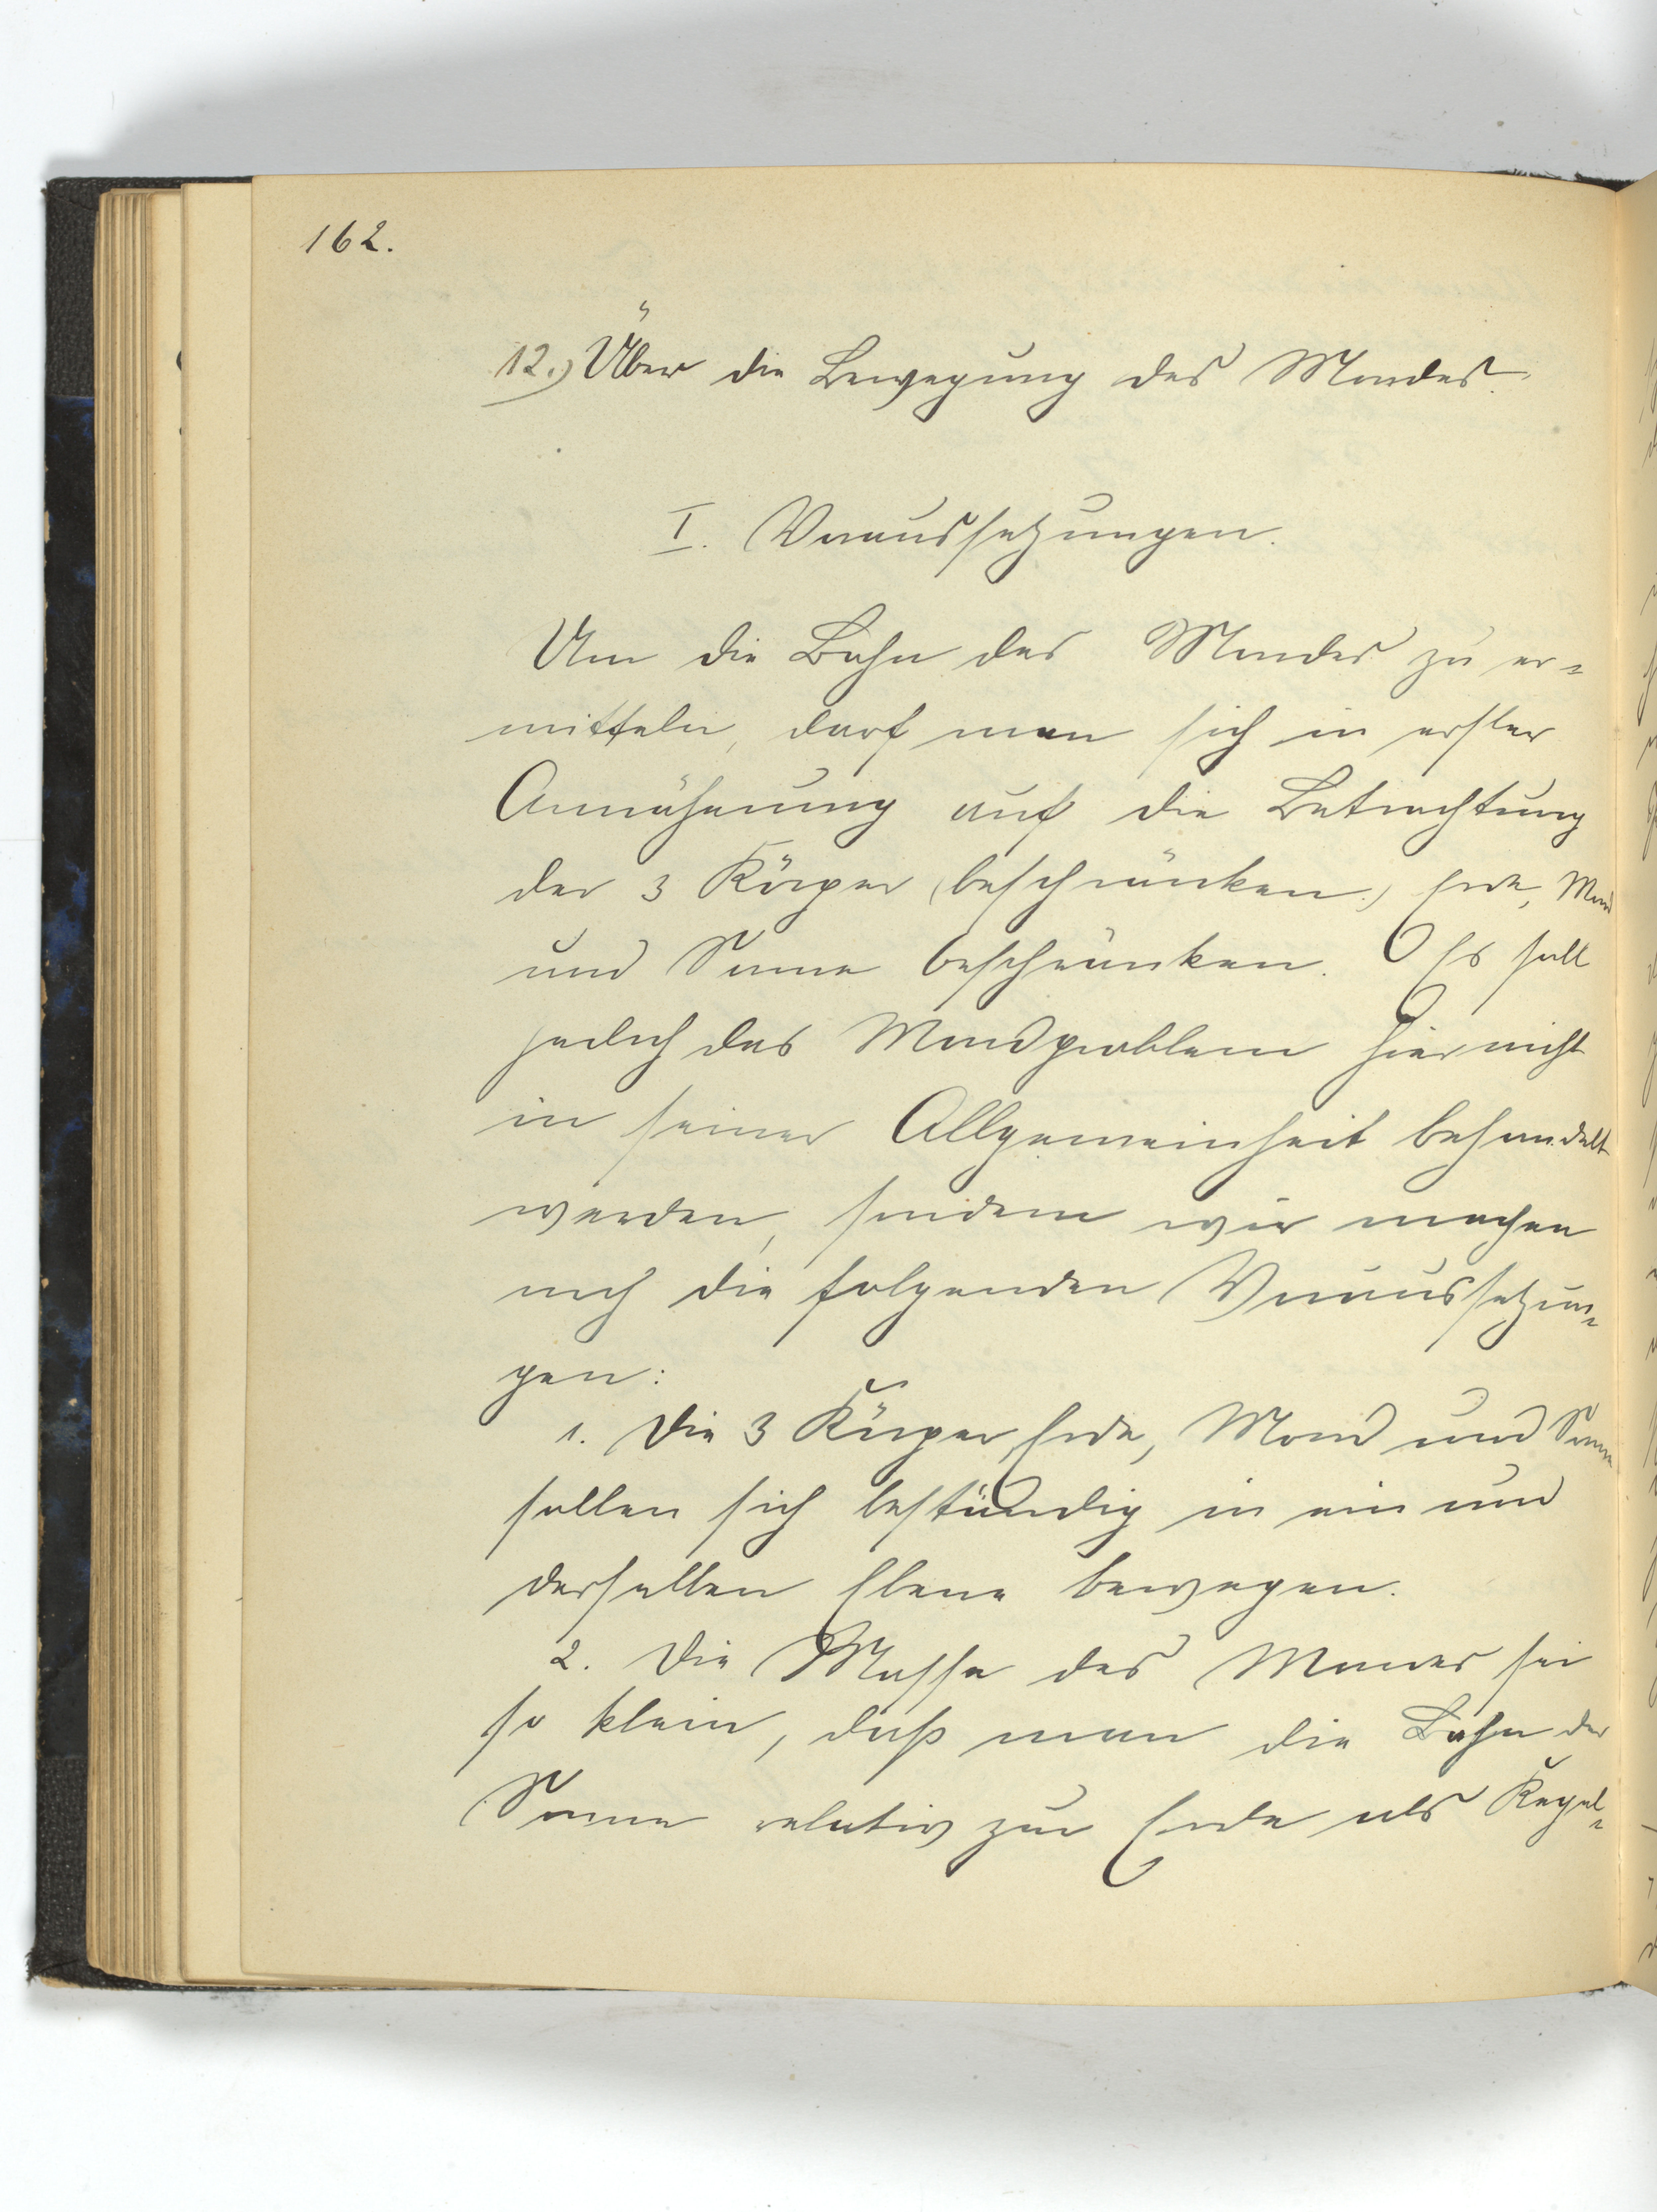 162.
12.) Über die Bewegung des Mondes.
I. Voraussetzungen.
Um die Bahn des Mondes zu er=
mitteln, darf man sich in erster
Annäherung auf die Betrachtung
der 3 Körper (beschränken,) Erde, Mond
und Sonne beschränken. Es soll
jedoch das Mondproblem hier nicht
in seiner Allgemeinheit behandelt
werden, sondern wir machen
noch die folgenden Voraussetzun=
gen:
1. Die 3 Körper Erde, Mond und Sonne
sollen sich beständig in ein und
derselben Ebene bewegen.
2. Die Masse des Mondes sei
so klein, daß man die Bahn der
Sonne relativ zur Erde als Kegel=